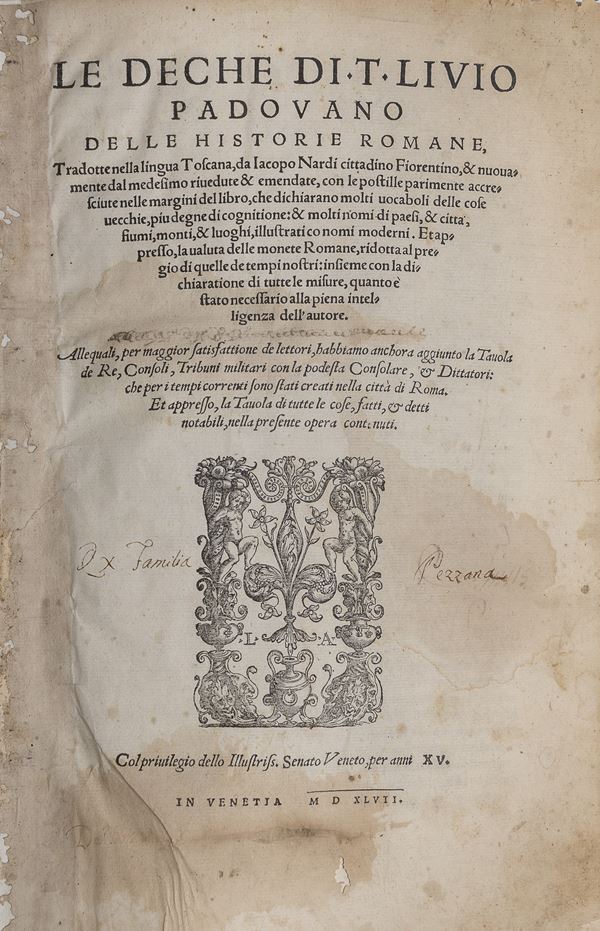 LE DECHE DI·T·LIVIO
PADOVANO
DELLE HISTORIE ROMANE,
Tradotte nella lingua Toscana, da Iacopo Nardi cittadino Fiorentino, & nuoua⸗
mente dal medesimo riuedute & emendate, con le postille parimente accre⸗
sciute nelle margini del libro, che dichiarano molti uocaboli delle cose
uecchie, piu degne di cognitione: & molti nomi di paesi, & citta,
fiumi, monti, & luoghi, illustrati co nomi moderni. Et ap⸗
presso, la ualuta delle monete Romane, ridotta al pre⸗
gio di quelle de tempi nostri: insieme con la di⸗
chiaratione di tutte le misure, quanto è
stato necessario alla piena intel⸗
ligenza dell'autore.
Alle quali, per maggior satisfattione de lettori, habbiamo anchora aggiunto la Tauola
de Re, Consoli, Tribuni militari con la podesta Consolare, & Dittatori:
che per i tempi correnti sono stati creati nella città di Roma.
Et appresso, la Tauola di tutte le cose, fatti, & detti
notabili, nella presente opera contenuti.
Familia Pezzana
·L· ·A·
Col priuilegio dello Illustriss. Senato Veneto, per anni XV.
IN VENETIA M D XLVII.